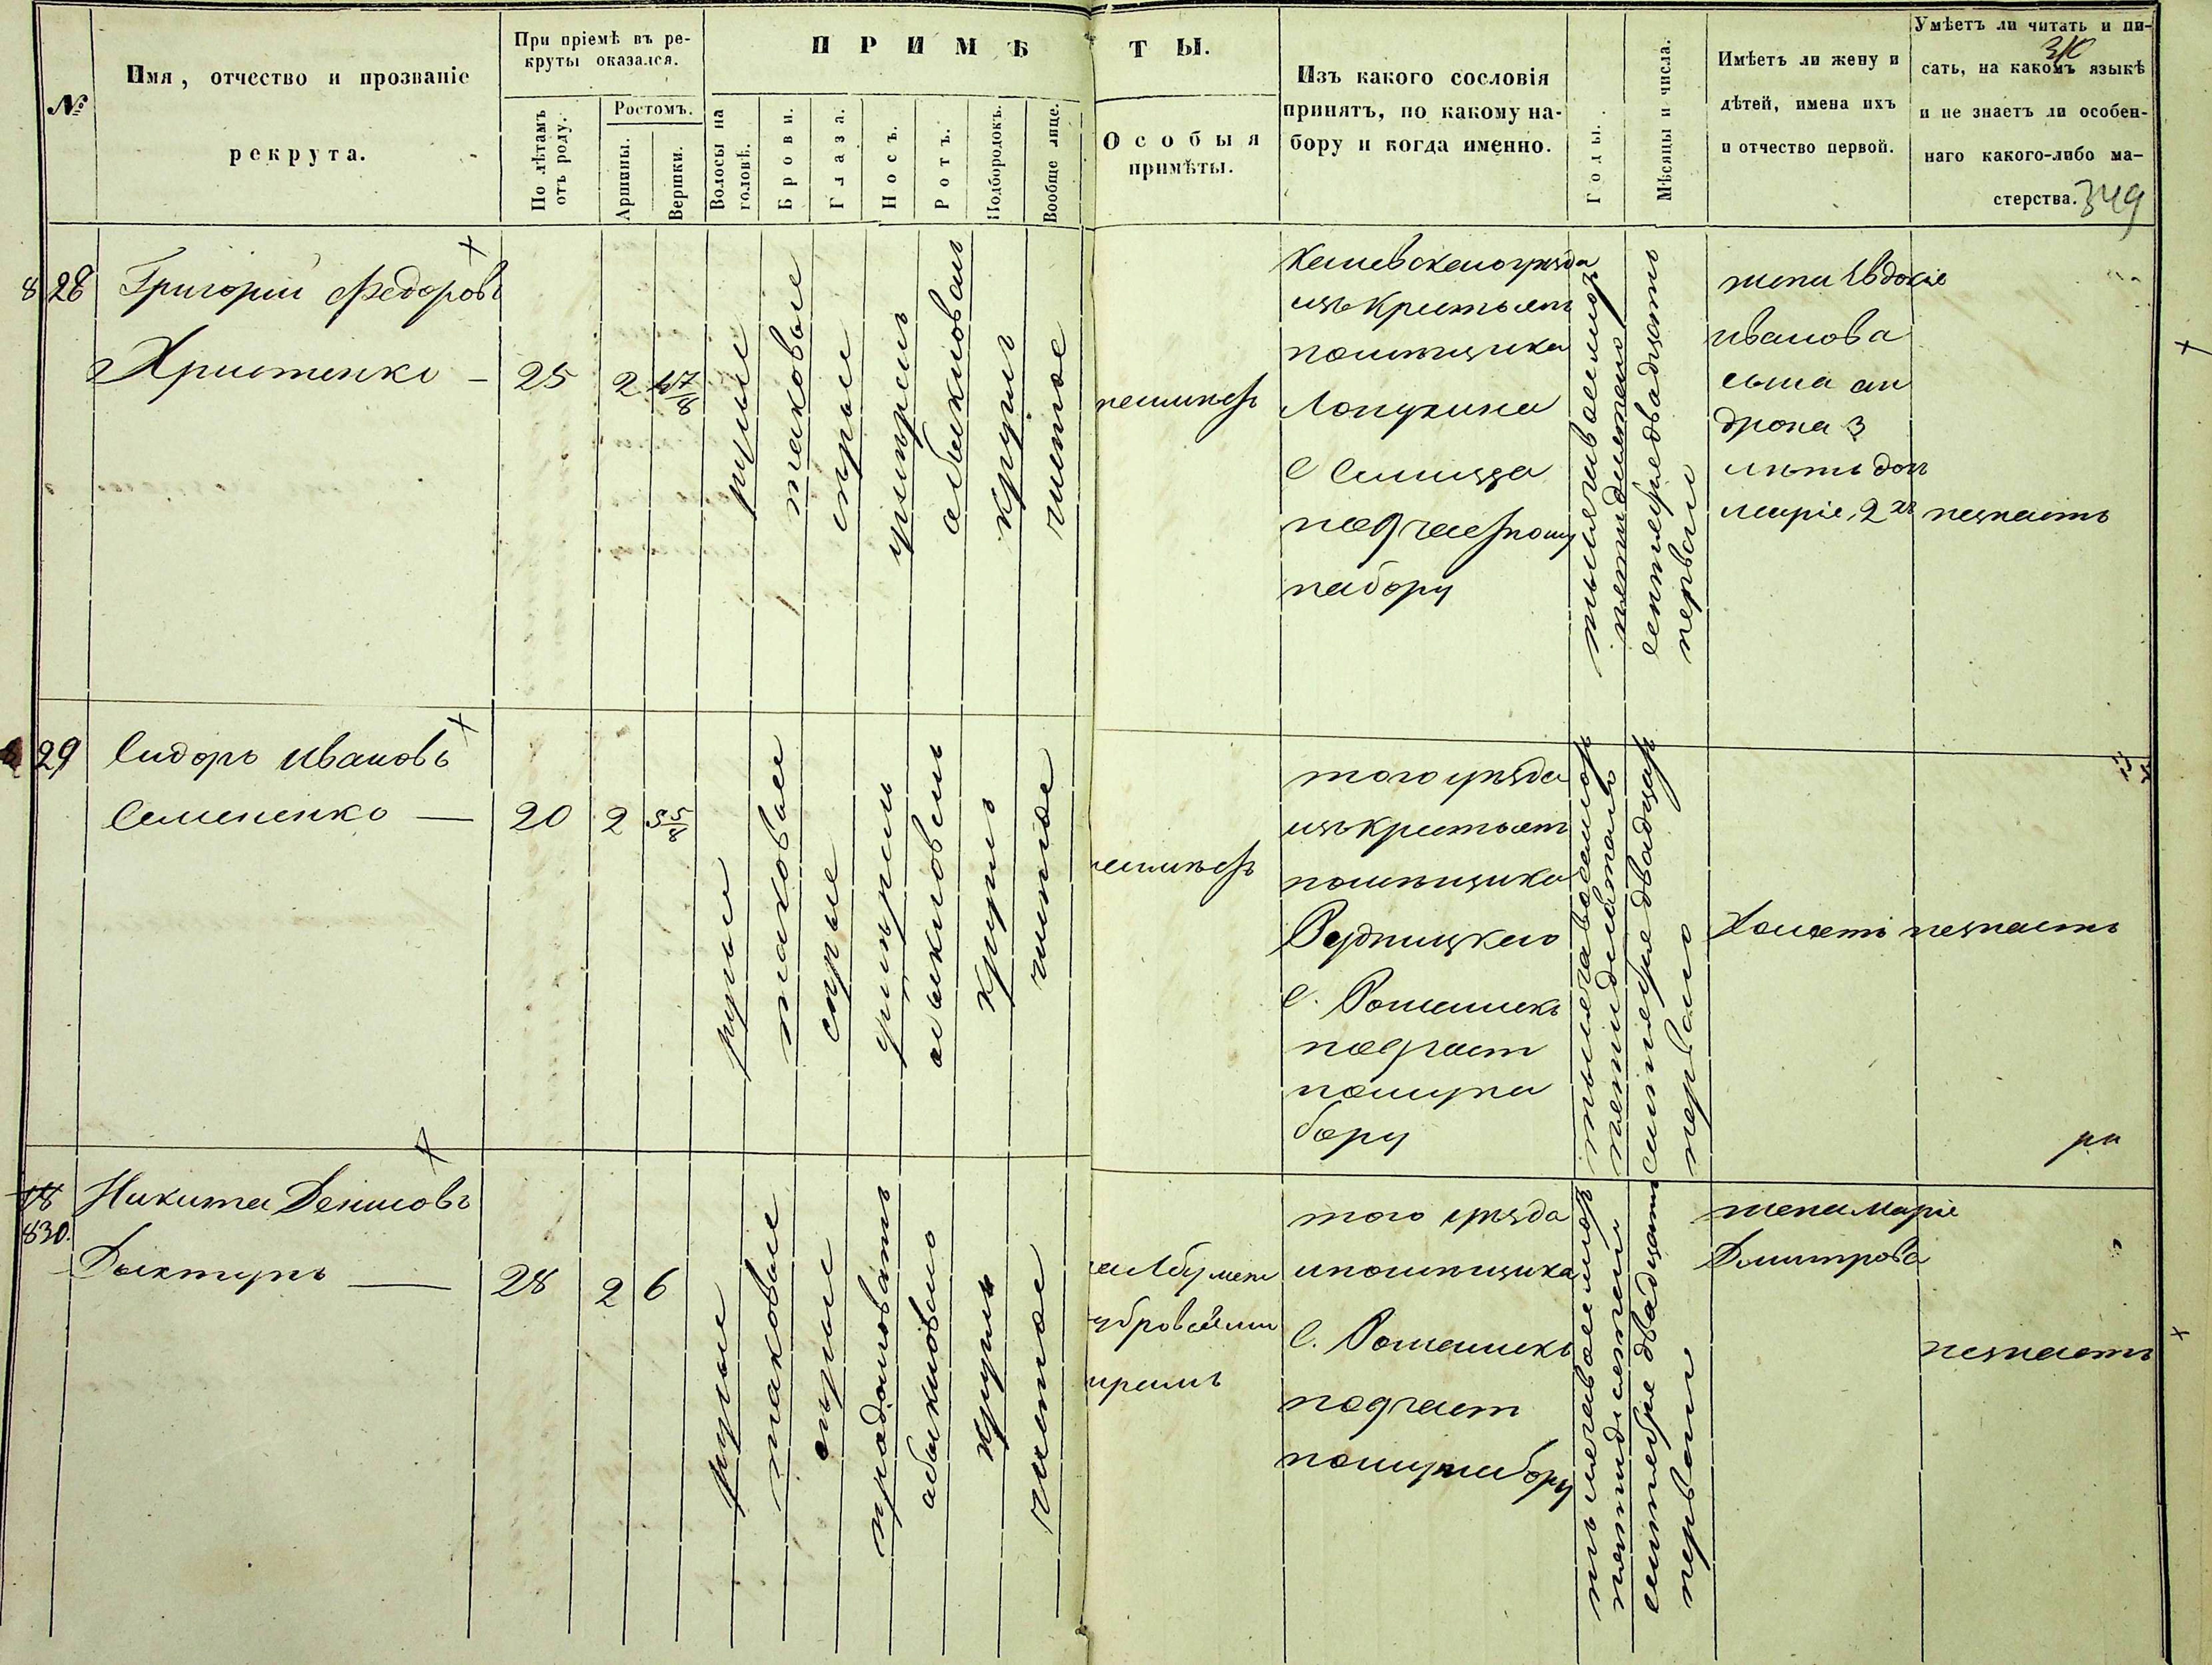 №
Имя, отчество и прозваніе
рекрута.
При пріемѣ въ ре-
круты оказался.
По лѣтамъ
отъ роду.
Ростомъ.
Аршины.
Вершки.
ПРИМѢТЫ.
Волосы на
головѣ.
Брови.
Глаза.
Носъ.
Ротъ.
Подбородокъ.
Вообще лице.
Особыя
примѣты.
Изъ какого сословія
принятъ, по какому на-
бору и когда именно.
Годы.
Мѣсяцы и числа.
Имѣетъ ли жену и
дѣтей, имена ихъ
и отчество первой.
Умѣетъ ли читать и пи-
сать, на какомъ языкѣ
и не знаетъ ли особен-
наго какого-либо ма-
стерства.
349
8 28
Григорій Федоровъ
Христенко —
25
2
4 7/8
русые
таковые
серые
умерен
обыкновен
кругл
чистое
неимеетъ
уезда
изъ крестьян
помещика
Лопухина
с
по 9 частному
набору
тысяча восемьсот
пятидесятого
сентября двадцать
первого
жена Евдокія
иванова
сына ан
дрона 3
летъ доч
марія, 2 хъ
незнаетъ
29
Сидоръ Ивановъ
Семененко —
20
2
5 5/8
русые
таковые
серые
умерен
обыкновен
кругл
чистое
неимеетъ
того уезда
изъ крестьян
помещика
с. Ромашекъ
по 9 част
ному на
бору
тысяча восемьсот
пятидесятого
сентября двадцать
первого
Холостъ
незнаетъ
830.
Никита Денисовъ
—
28
2
6
русые
таковые
серые
продолговатъ
обыкновено
кругл
чистое
на лбу меж
у бровей
шрамъ
того уезда
и помещика
с. Ромашекъ
по 9 част
ному набору
тысяча восемьсот
пятидесятого
сентября двадцать
первого
жена Марія
Дмитрова
незнаетъ